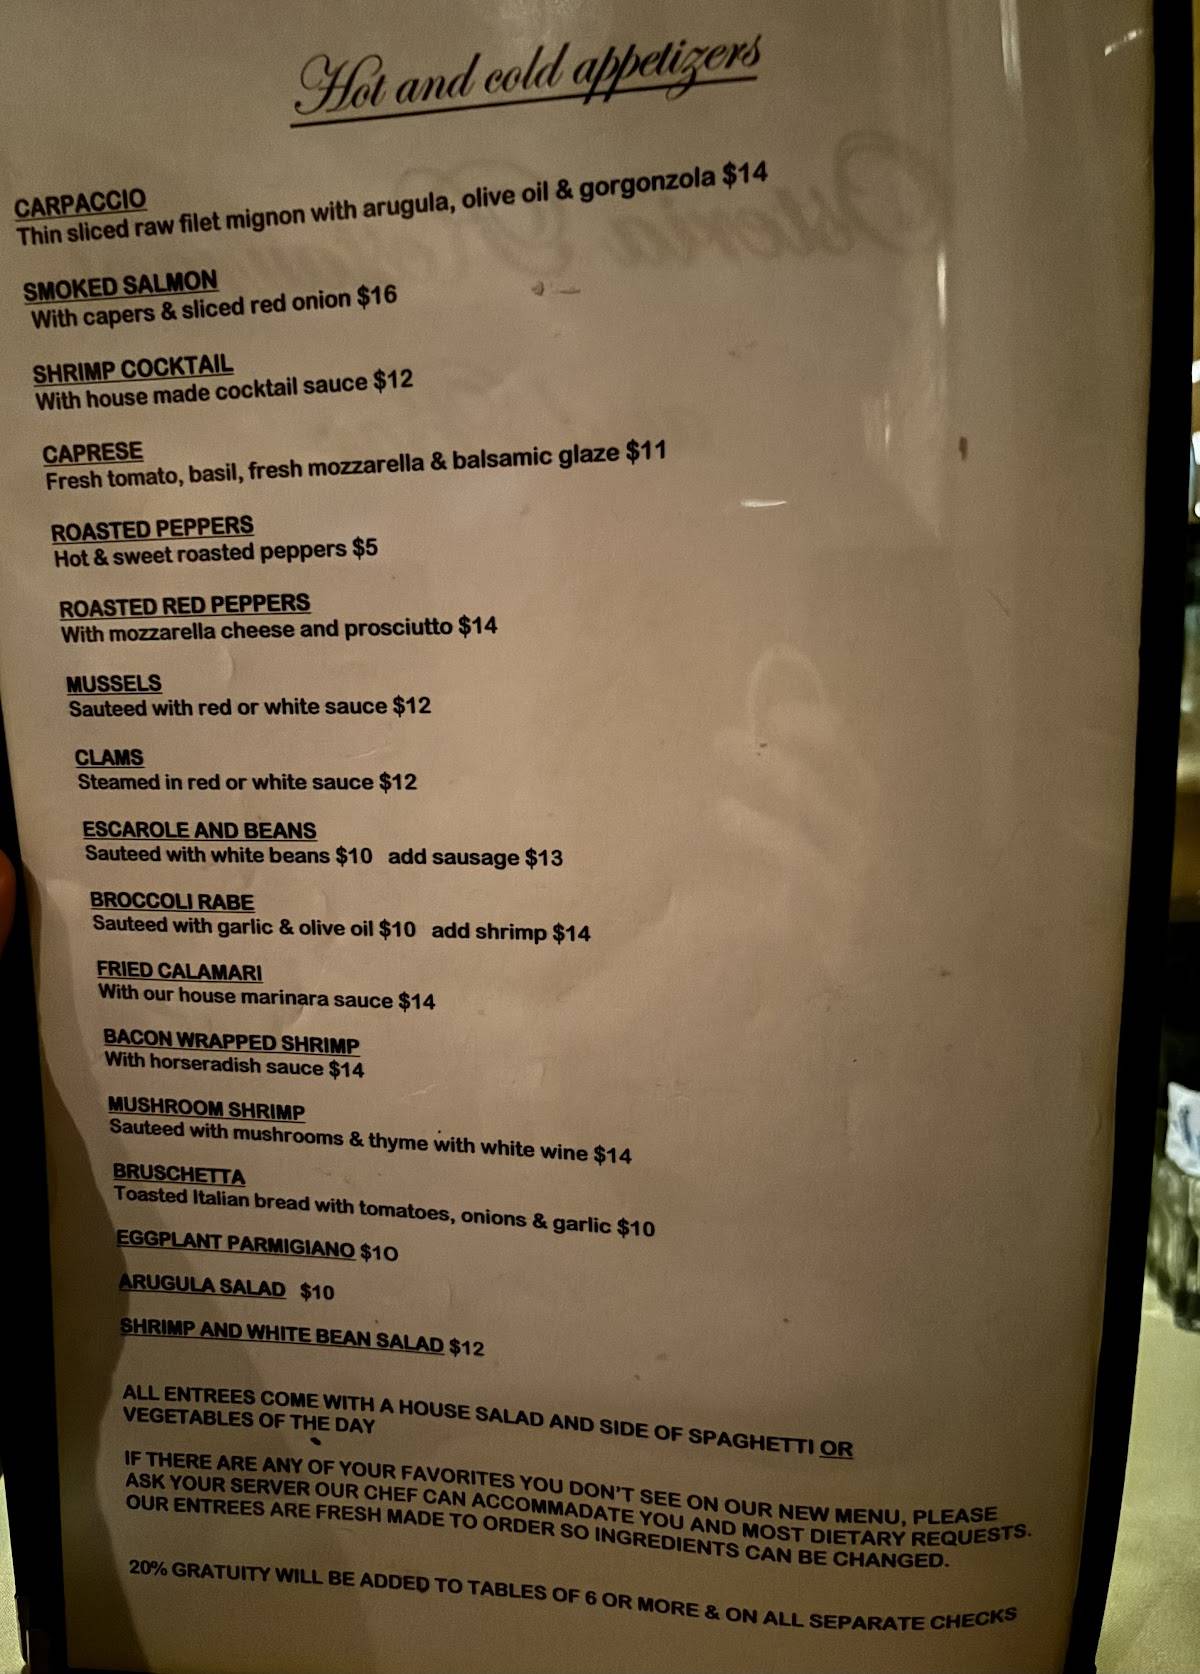 Hot and cold appetizers
CARPACCIO
Thin sliced raw filet mignon with arugula, olive oil & gorgonzola $14
SMOKED SALMON
With capers & sliced red onion $16
SHRIMP COCKTAIL
With house made cocktail sauce $12
CAPRESE
Fresh tomato, basil, fresh mozzarella & balsamic glaze $11
ROASTED PEPPERS
Hot & sweet roasted peppers $5
ROASTED RED PEPPERS
With mozzarella cheese and prosciutto $14
MUSSELS
Sauteed with red or white sauce $12
CLAMS
Steamed in red or white sauce $12
ESCAROLE AND BEANS
Sauteed with white beans $10 add sausage $13
BROCCOLI RABE
Sauteed with garlic & olive oil $10 add shrimp $14
FRIED CALAMARI
With our house marinara sauce $14
BACON WRAPPED SHRIMP
With horseradish sauce $14
MUSHROOM SHRIMP
Sauteed with mushrooms & thyme with white wine $14
BRUSCHETTA
Toasted Italian bread with tomatoes, onions & garlic $10
EGGPLANT PARMIGIANO $10
ARUGULA SALAD $10
SHRIMP AND WHITE BEAN SALAD $12
ALL ENTREES COME WITH A HOUSE SALAD AND SIDE OF SPAGHETTI OR
VEGETABLES OF THE DAY
IF THERE ARE ANY OF YOUR FAVORITES YOU DON'T SEE ON OUR NEW MENU, PLEASE
ASK YOUR SERVER OUR CHEF CAN ACCOMMADATE YOU AND MOST DIETARY REQUESTS.
OUR ENTREES ARE FRESH MADE TO ORDER SO INGREDIENTS CAN BE CHANGED.
20% GRATUITY WILL BE ADDED TO TABLES OF 6 OR MORE & ON ALL SEPARATE CHECKS